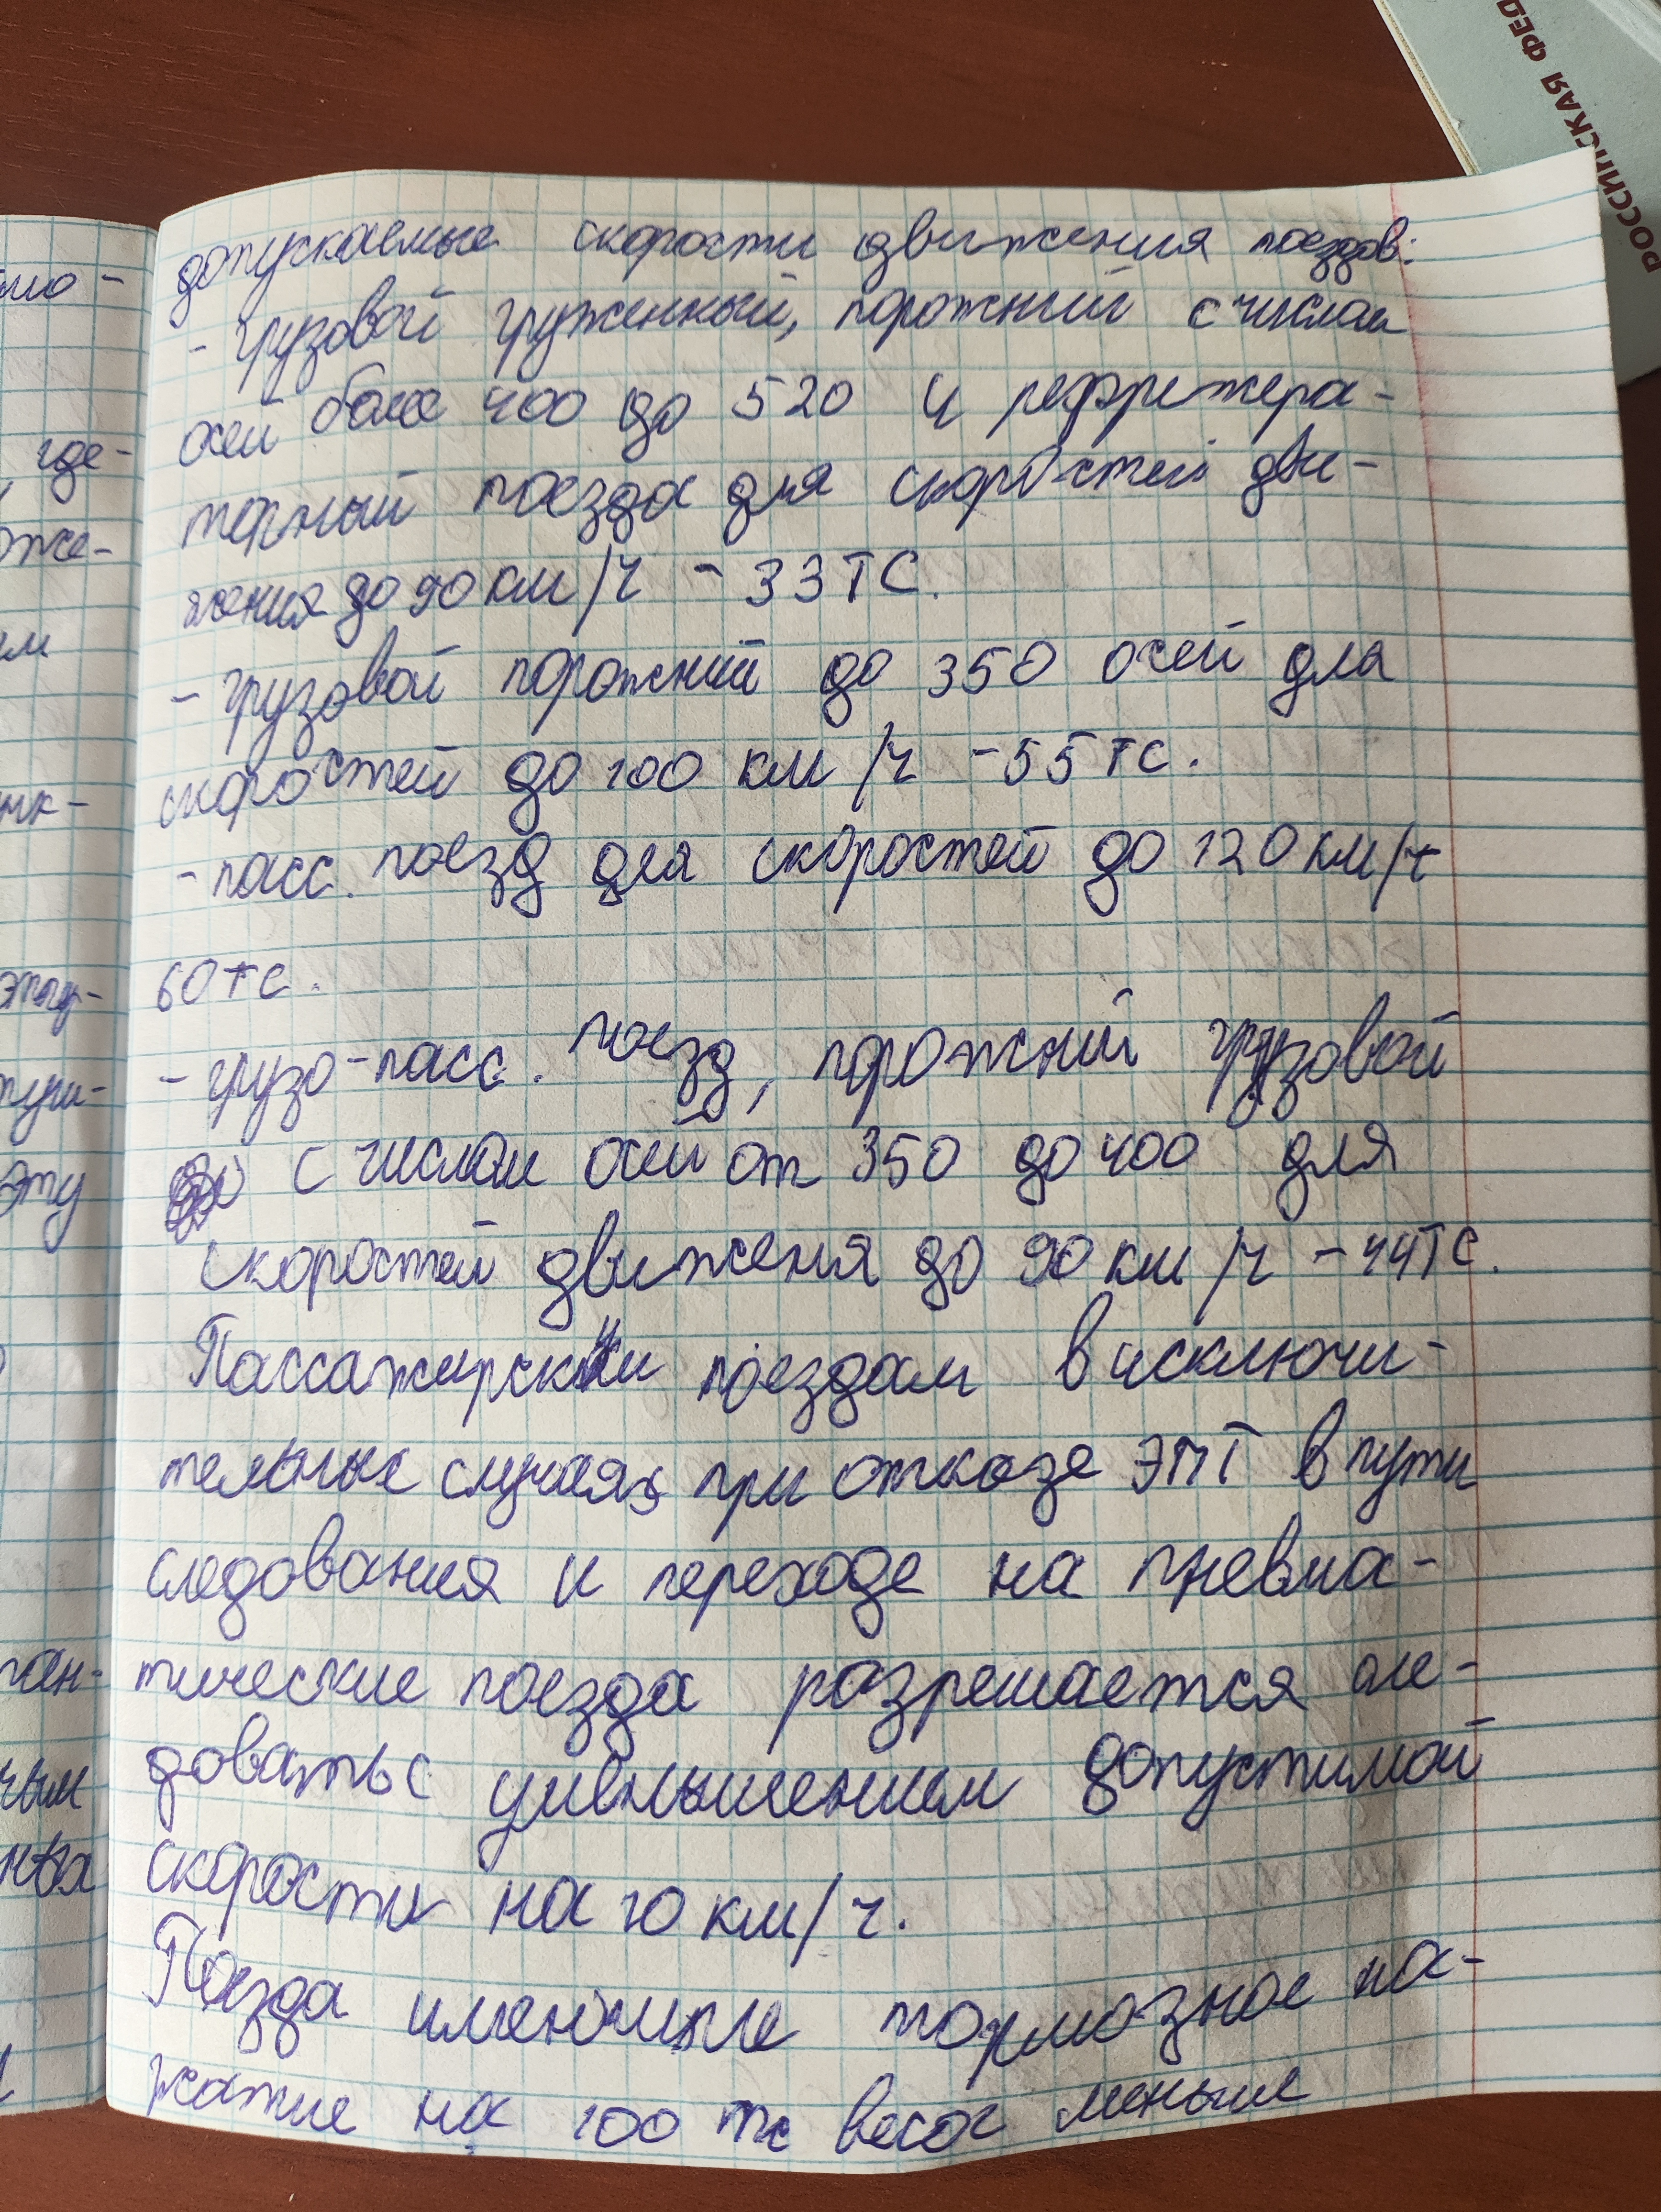 РОССИЙСКАЯ ФЕД
допускаемые скорости движения поездов:
- грузовой груженный, порожний с числом
осей более 400 до 520 и рефрижера-
торный поезда для скоростей дви-
жения до 90 км/ч - 33ТС.
- грузовой порожний до 350 осей для
скоростей до 100 км/ч - 55 тс.
- пасс. поезд для скоростей до 120 км/ч
60тс.
- грузо-пасс. поезд, порожний грузовой
с числом осей от 350 до 400 для
скоростей движеня до 90 км/ч - 44ТС.
Пассажирски поездам в исключи-
тельные случаях при отказе ЭПТ в пути
следования и переходе на пневма-
тические поезда разрешается сле-
довать с уменьшением допустимой
скорости на 10 км/ч.
Поезда имеющие тормозное на-
жатие на 100 тс веса меньше
мо-
где-
оже-
ем
нк-
пуш-
эту
ган-
ным